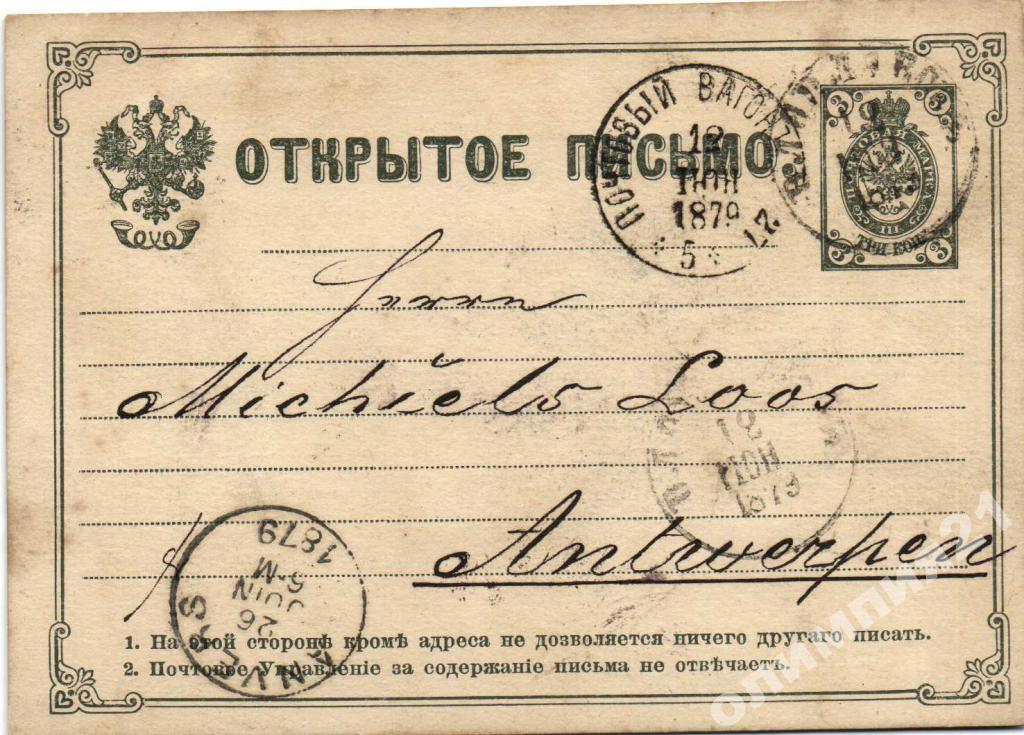 ОТКРЫТОЕ ПИСЬМО
ПОЧТОВЫЙ ВАГОН
12
ІЮН
1879
5
3 3
ТРИ КОП.
3 3
Herrn
Michiels Loos
1879
Antwerpen
ANVERS
26
JUIN
1879
1. На этой сторонѣ кромѣ адреса не дозволяется ничего другаго писать.
2. Почтовое Управленіе за содержаніе письма не отвѣчаетъ.
олимпих21